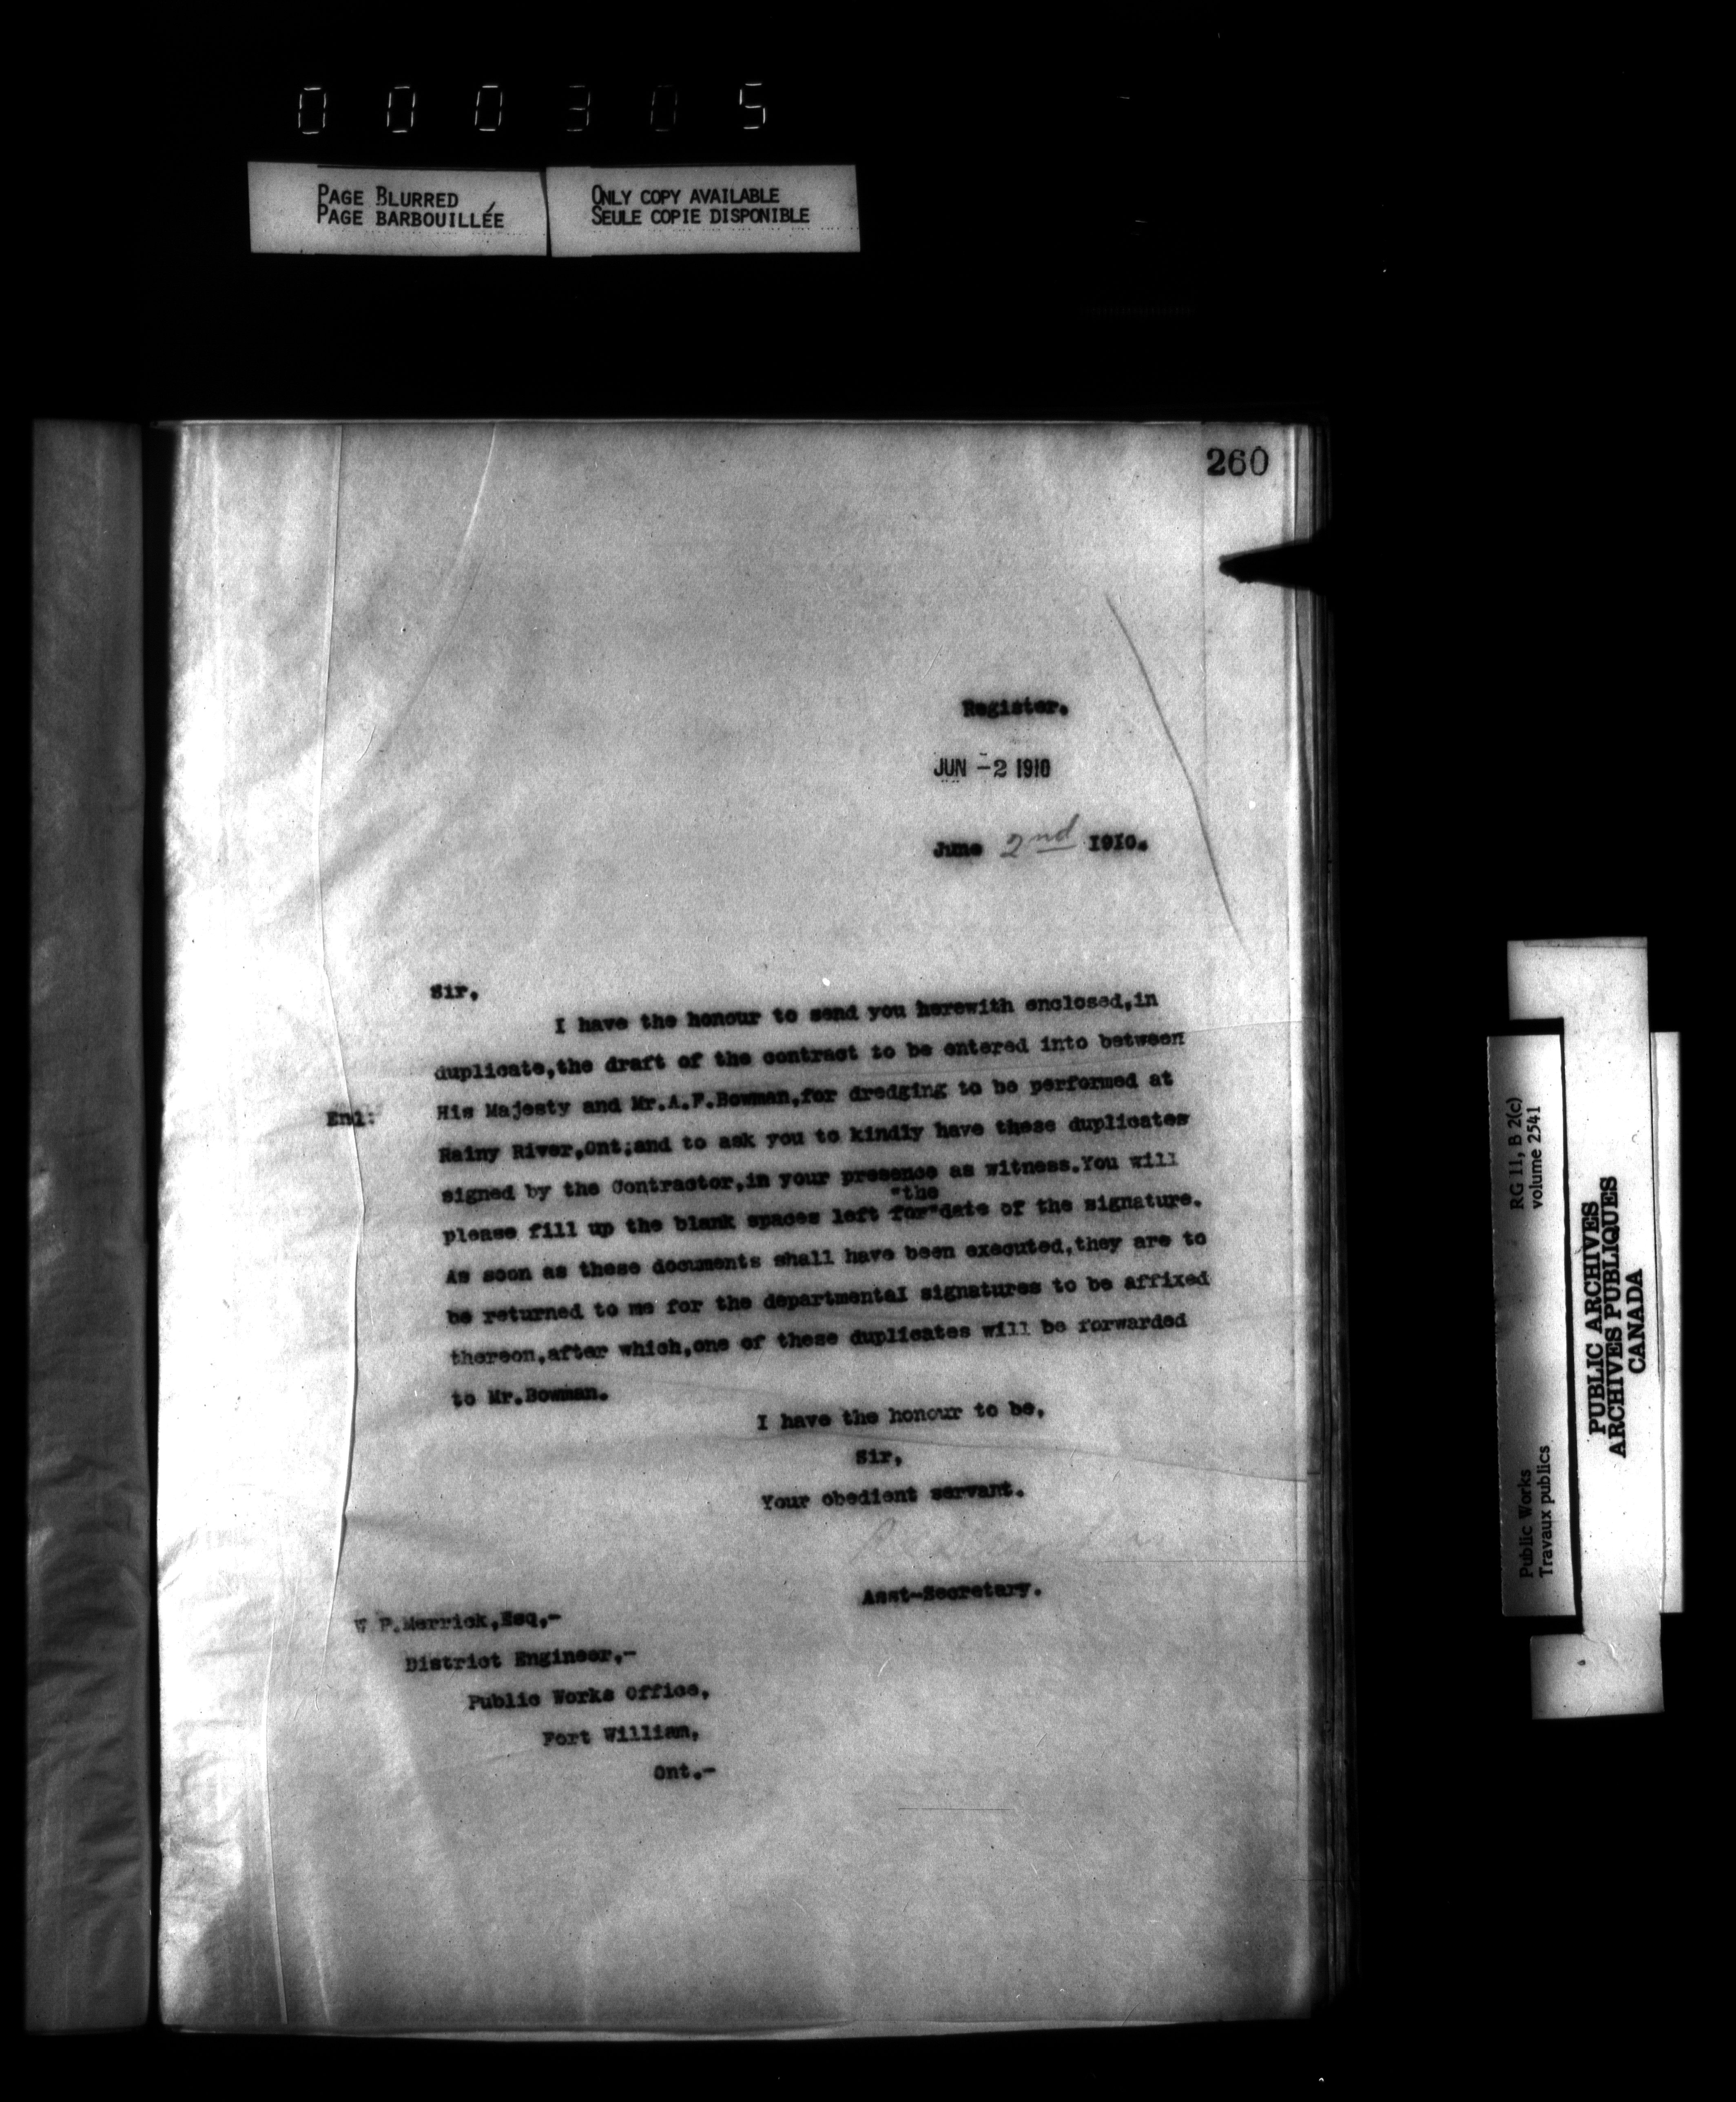 000305
PAGE BLURRED
PAGE BARBOUILLÉE
ONLY COPY AVAILABLE
SEULE COPIE DISPONIBLE
260
Register.
JUN -2 1910
June 2nd 1910.
Sir,
I have the honour to send you herewith enclosed,in
duplicate,the draft of the contract to be entered into between
His Majesty and Mr.A.F.Bowman,for dredging to be performed at
Enl:
Rainy River,Ont;and to ask you to kindly have these duplicates
signed by the Contractor,in your presence as witness.You will
"the
please fill up the blank spaces left for"date of the signature.
As soon as these documents shall have been executed,they are to
be returned to me for the departmental signatures to be affixed
thereon,after which,one of these duplicates will be forwarded
to Mr.Bowman.
I have the honour to be,
Sir,
Your obedient servant.
Asst-Secretary.
W F.Merrick,Esq,-
District Engineer,-
Public Works Office,
Fort William,
Ont.-
RG 11, B 2(c)
volume 2541
Public Works
Travaux publics
PUBLIC ARCHIVES
ARCHIVES PUBLIQUES
CANADA